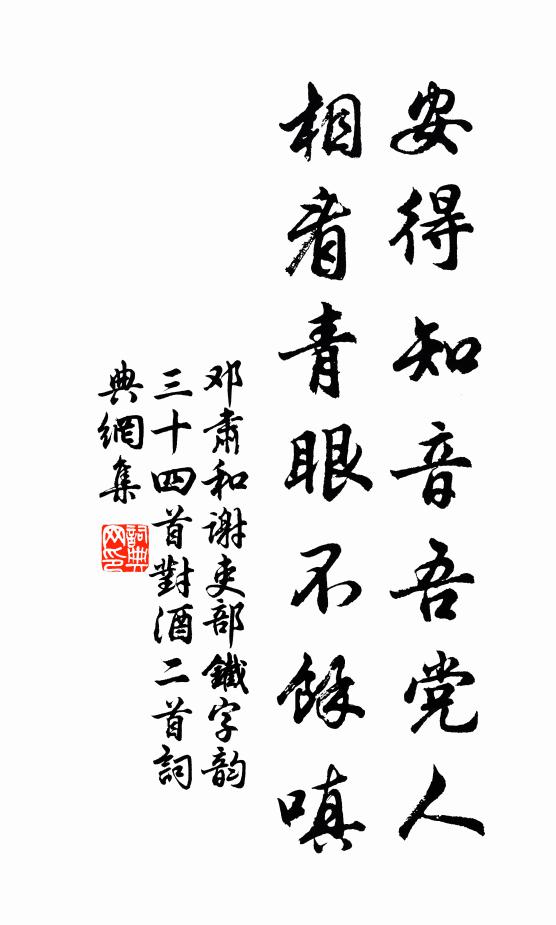 安得知音吾党人
相看青眼不餘嗔
邓肅和谢吏部鐵字韵
三十四首對酒二首詞
典網集
詞典網印